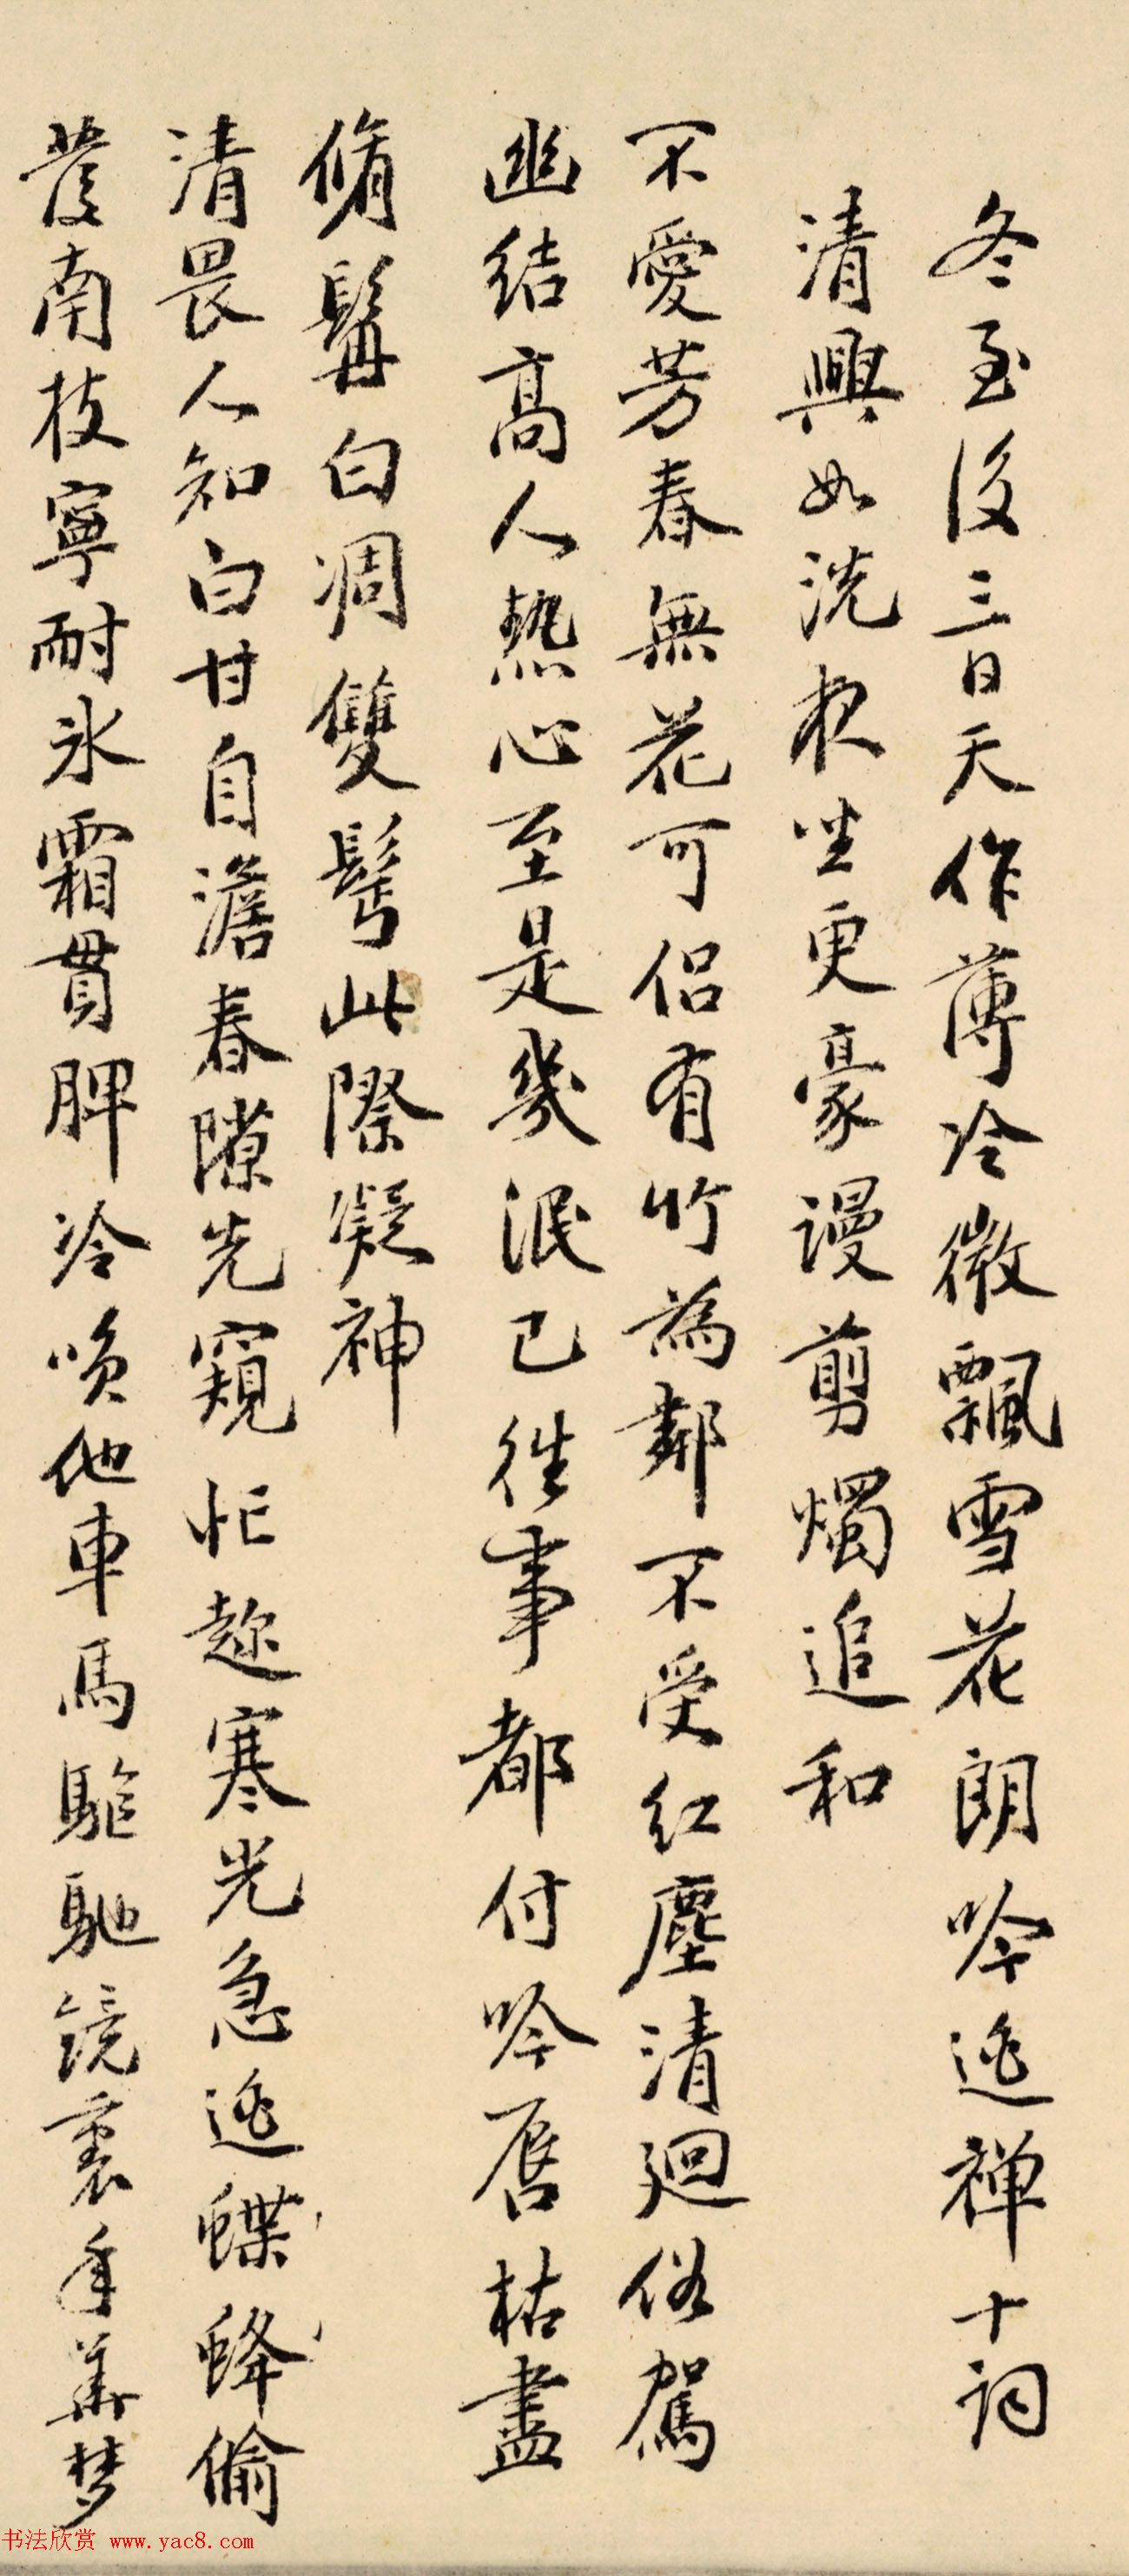 冬至後三日天作薄冷微飄雪花朗吟逃禪十詞
清興如洗夜坐更豪謾剪燭追和
不愛芳春無花可侶有竹為鄰不受紅塵清迴俗駕
幽結高人熱心至是幾泯已往事都付吟唇枯盡
脩髯白凋雙鬢此際凝神
清畏人知白甘自澹春隙先窺忙趂寒光急逃蝶蜂偷
護南枝寧耐氷霜貫脾冷喚他車馬驅馳鏡裏年華梦
书法欣赏 www.yac8.com